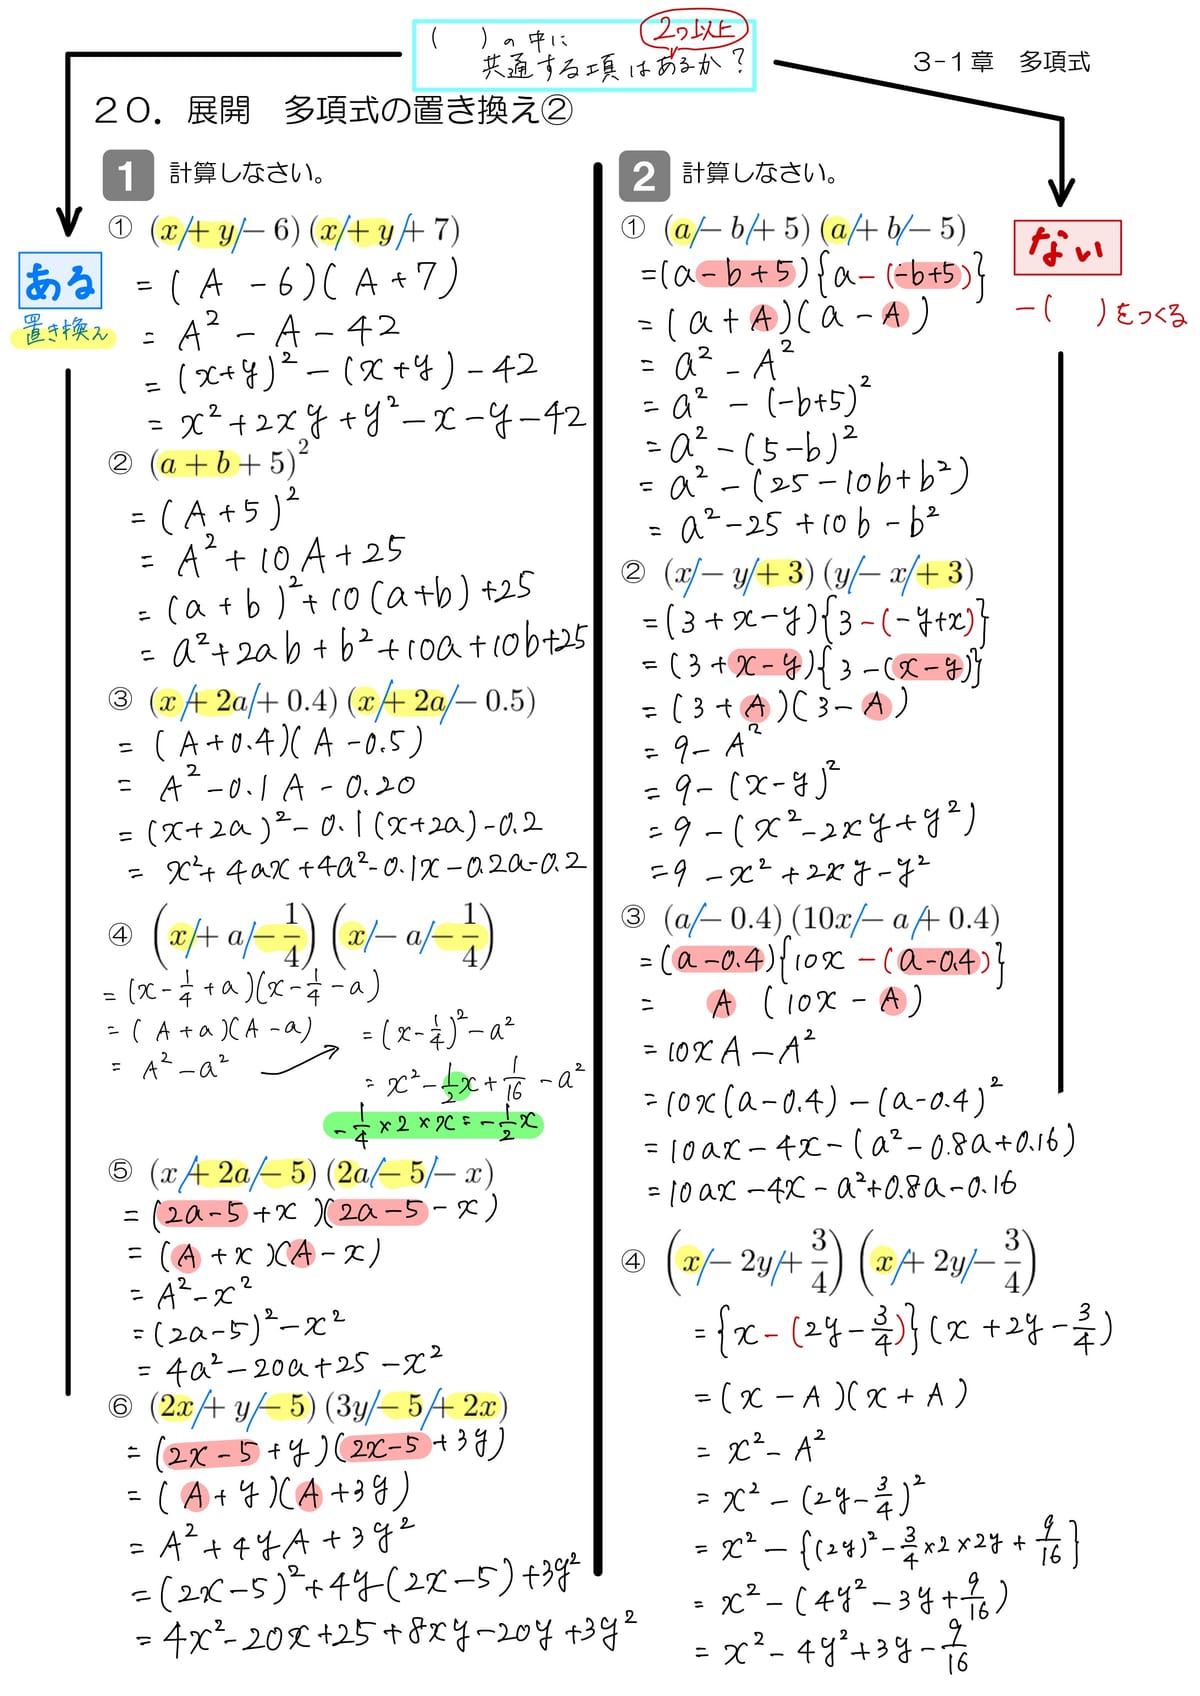 ( )の中に 2つ以上
共通する項はあるか?
3-1章 多項式
20. 展開 多項式の置き換え②
ある
置き換え
ない
-( )をつくる
1 計算しなさい。
① (x+y-6)(x+y+7)
=(A-6)(A+7)
=A²-A-42
=(x+y)²-(x+y)-42
=x²+2xy+y²-x-y-42
② (a+b+5)²
=(A+5)²
=A²+10A+25
=(a+b)²+10(a+b)+25
=a²+2ab+b²+10a+10b+25
③ (x+2a+0.4)(x+2a-0.5)
=(A+0.4)(A-0.5)
=A²-0.1A-0.20
=(x+2a)²-0.1(x+2a)-0.2
=x²+4ax+4a²-0.1x-0.2a-0.2
④ (x+a-1/4)(x-a-1/4)
=(x-1/4+a)(x-1/4-a)
=(A+a)(A-a)
=A²-a²
=(x-1/4)²-a²
=x²-1/2x+1/16-a²
-1/4×2×x=-1/2x
⑤ (x+2a-5)(2a-5-x)
=(2a-5+x)(2a-5-x)
=(A+x)(A-x)
=A²-x²
=(2a-5)²-x²
=4a²-20a+25-x²
⑥ (2x+y-5)(3y-5+2x)
=(2x-5+y)(2x-5+3y)
=(A+y)(A+3y)
=A²+4yA+3y²
=(2x-5)²+4y(2x-5)+3y²
=4x²-20x+25+8xy-20y+3y²
2 計算しなさい。
① (a-b+5)(a+b-5)
=(a-b+5){a-(-b+5)}
=(a+A)(a-A)
=a²-A²
=a²-(-b+5)²
=a²-(5-b)²
=a²-(25-10b+b²)
=a²-25+10b-b²
② (x-y+3)(y-x+3)
=(3+x-y){3-(-y+x)}
=(3+x-y){3-(x-y)}
=(3+A)(3-A)
=9-A²
=9-(x-y)²
=9-(x²-2xy+y²)
=9-x²+2xy-y²
③ (a-0.4)(10x-a+0.4)
=(a-0.4){10x-(a-0.4)}
= A (10x-A)
=10xA-A²
=10x(a-0.4)-(a-0.4)²
=10ax-4x-(a²-0.8a+0.16)
=10ax-4x-a²+0.8a-0.16
④ (x-2y+3/4)(x+2y-3/4)
={x-(2y-3/4)}(x+2y-3/4)
=(x-A)(x+A)
=x²-A²
=x²-(2y-3/4)²
=x²-{(2y)²-3/4×2×2y+9/16}
=x²-(4y²-3y+9/16)
=x²-4y²+3y-9/16